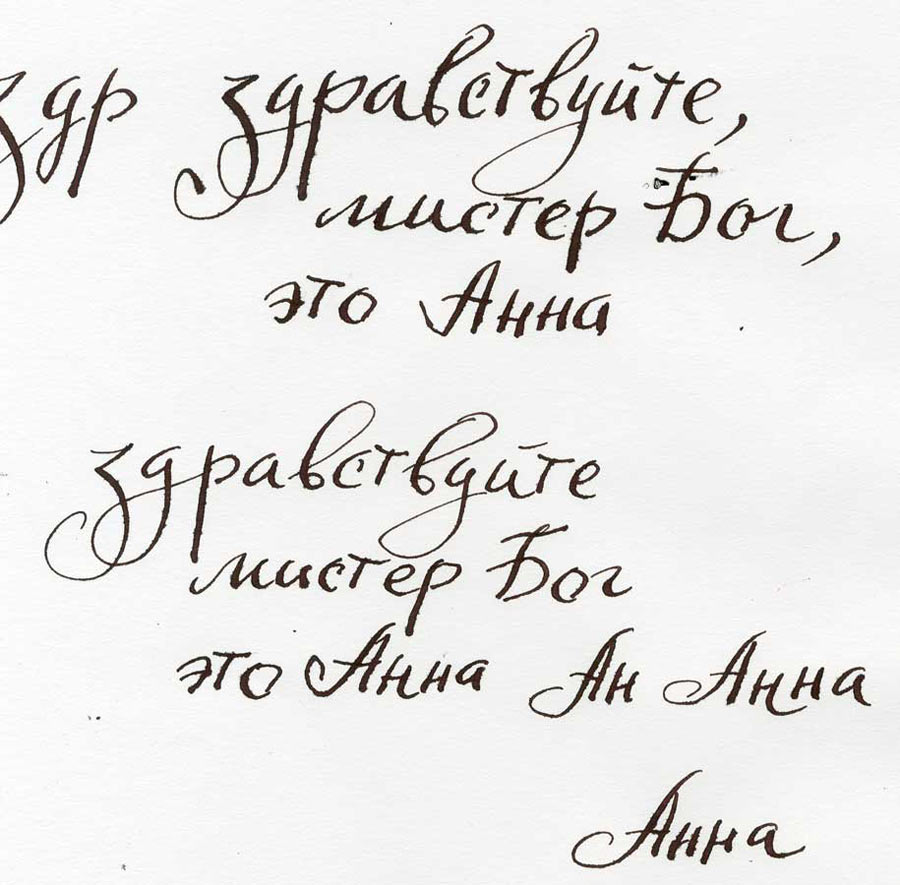 здр здравствуйте,
мистер Бог,
это Анна
здравствуйте
мистер Бог
это Анна Ан Анна
Анна